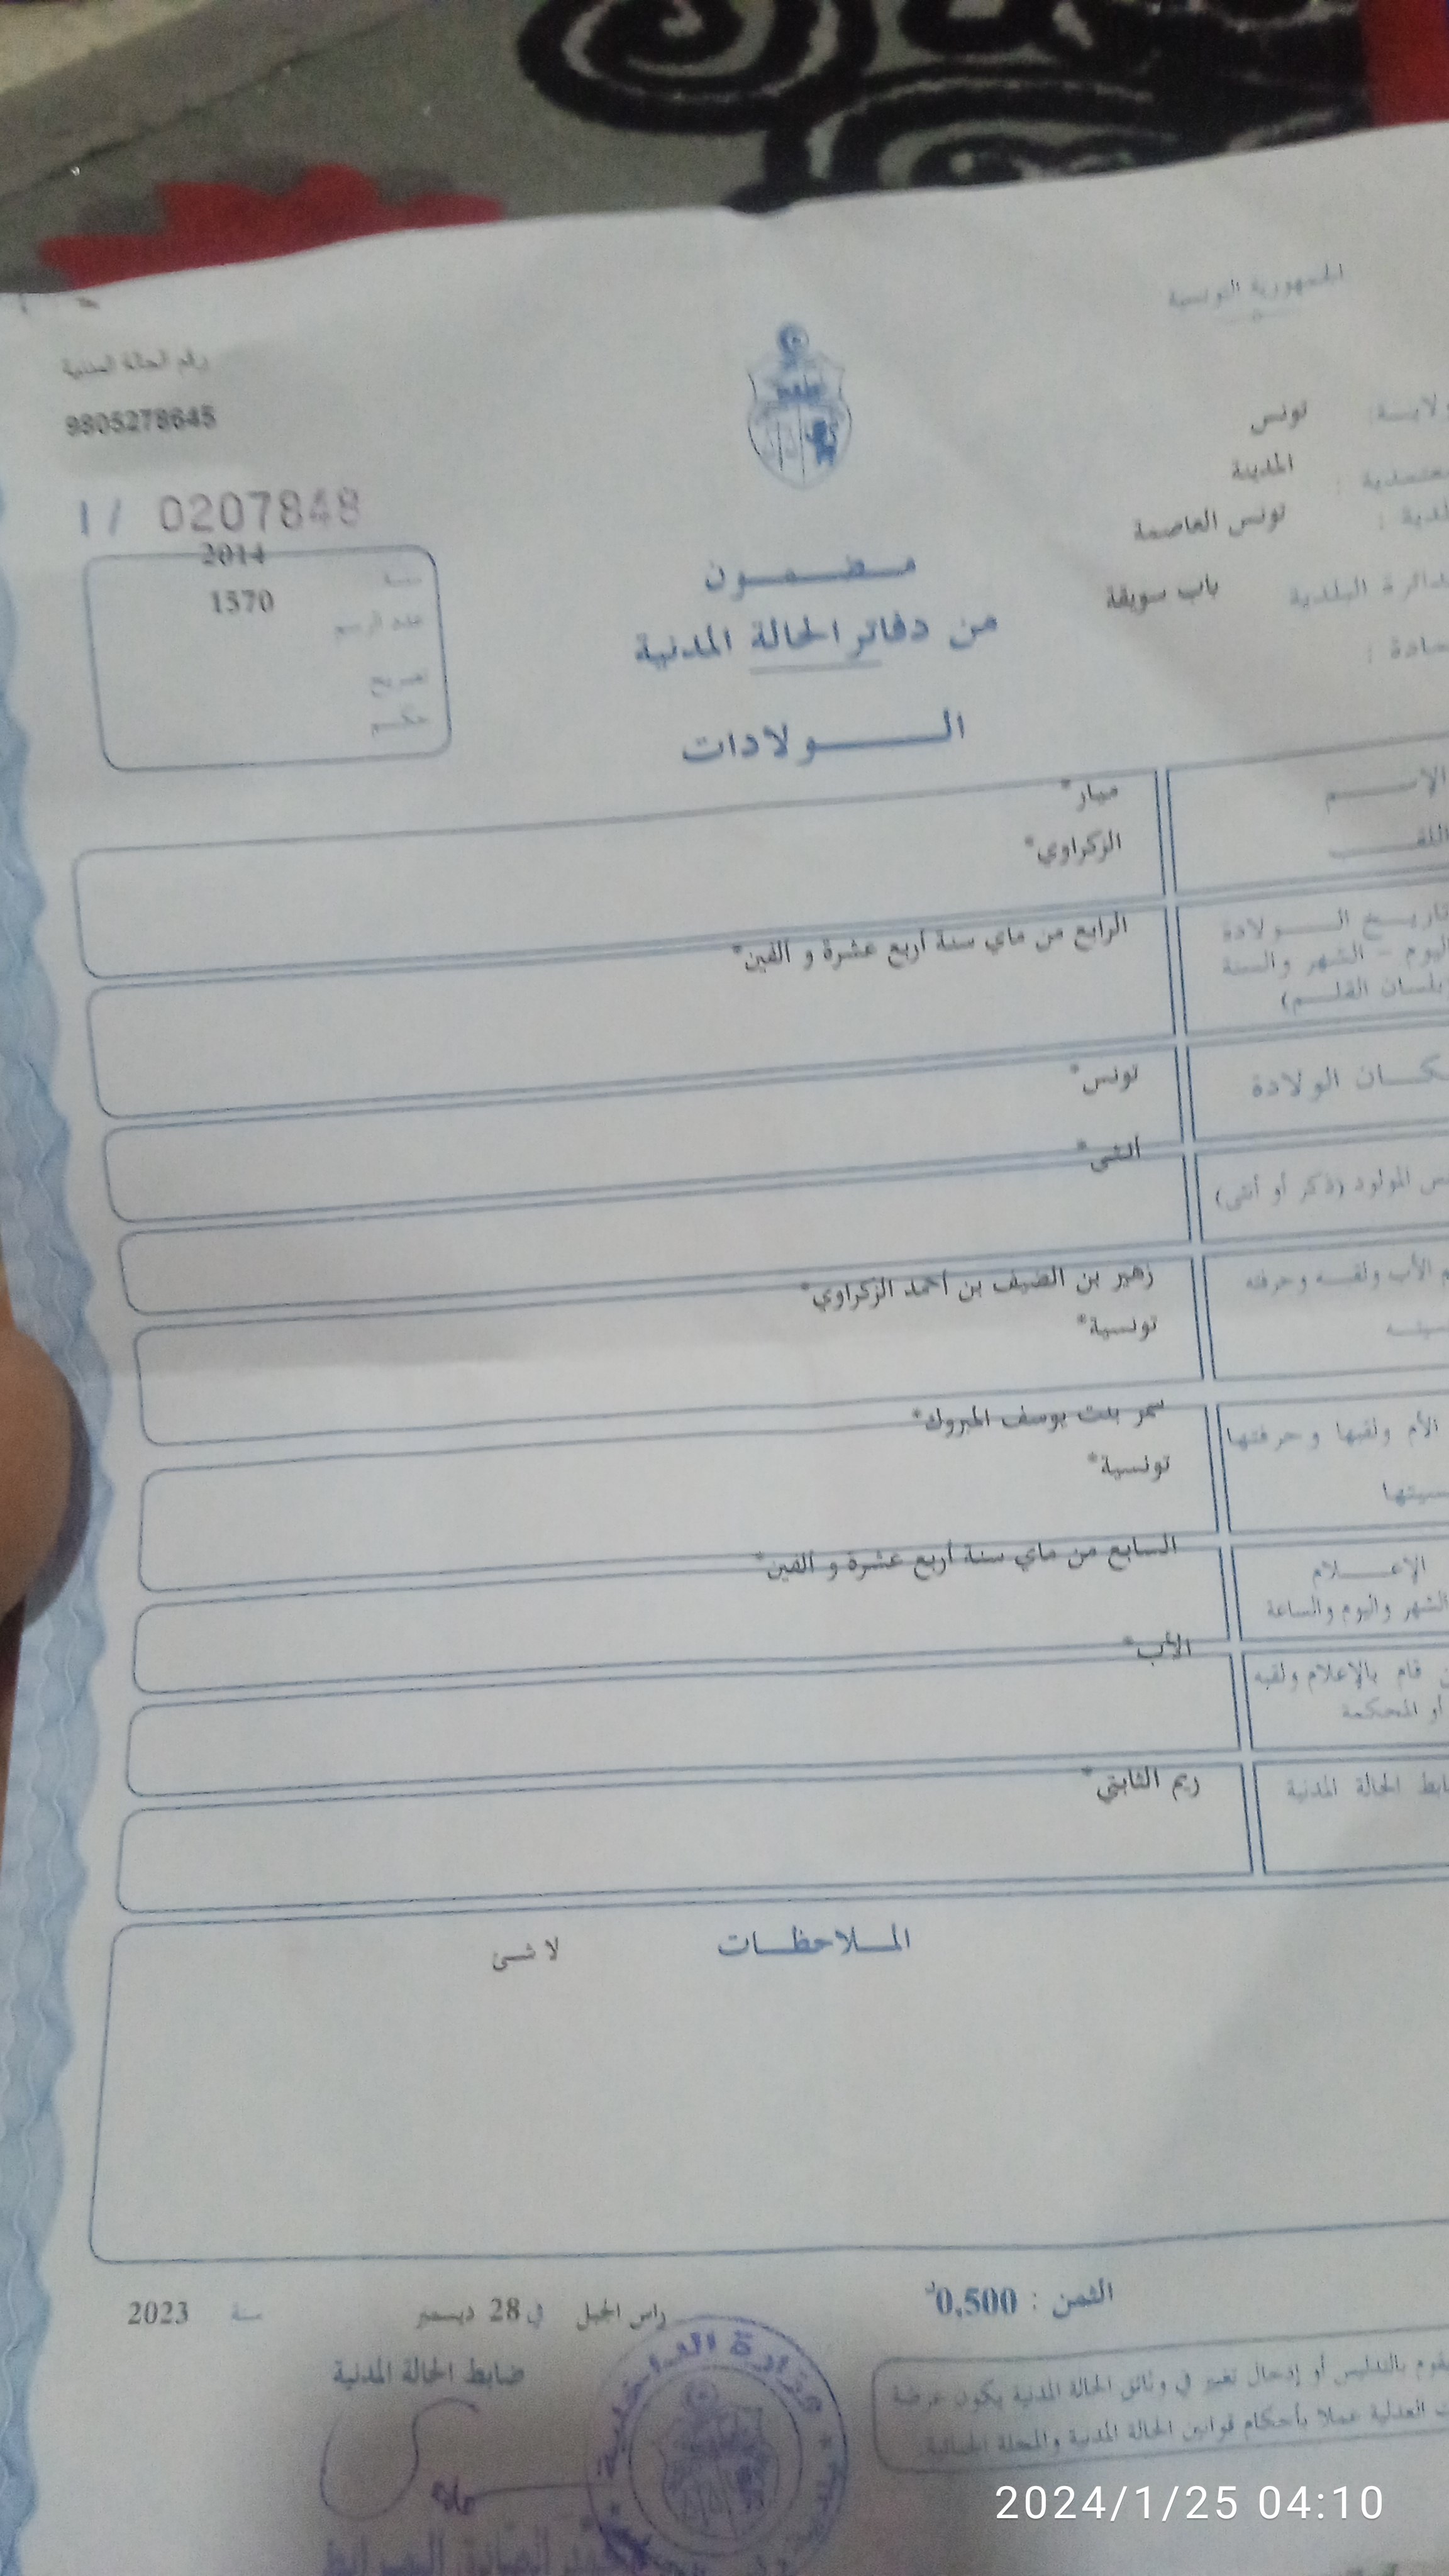 الجمهورية التونسية
رقم الحالة المدنية
9805278645
تونس
المدينة
تونس العاصمة
الدائرة البلدية باب سويقة
1 / 0207848
2014
سنة
1570
عدد الرسم
تصريح
حكم
مضمون
من دفاتر الحالة المدنية
الولادات
الإسم ميار*
اللقب الزكراوي*
تاريخ الولادة الرابع من ماي سنة أربع عشرة و ألفين*
اليوم - الشهر والسنة
(بلسان القلم)
كان الولادة تونس*
س المولود (ذكر أو أنثى) أنثى*
م الأب ولقبه وحرفته زهير بن الضيف بن أحمد الزكراوي*
سيته تونسية*
الأم ولقبها وحرفتها سمر بنت يوسف المبروك*
سيتها تونسية*
الإعلام السابع من ماي سنة أربع عشرة و ألفين*
الشهر واليوم والساعة
ن قام بالإعلام ولقبه الأب*
أو المحكمة
ابط الحالة المدنية ريم الثابتي*
الملاحظات لا شئ
الثمن : 0,500د
راس الجبل في 28 ديسمبر سنة 2023
ضابط الحالة المدنية
وزارة الداخلية
قوم بالتدليس أو إدخال تغيير في وثائق الحالة المدنية يكون عرضة
العدلية عملا بأحكام قوانين الحالة المدنية والمجلة الجنائية
2024/1/25 04:10